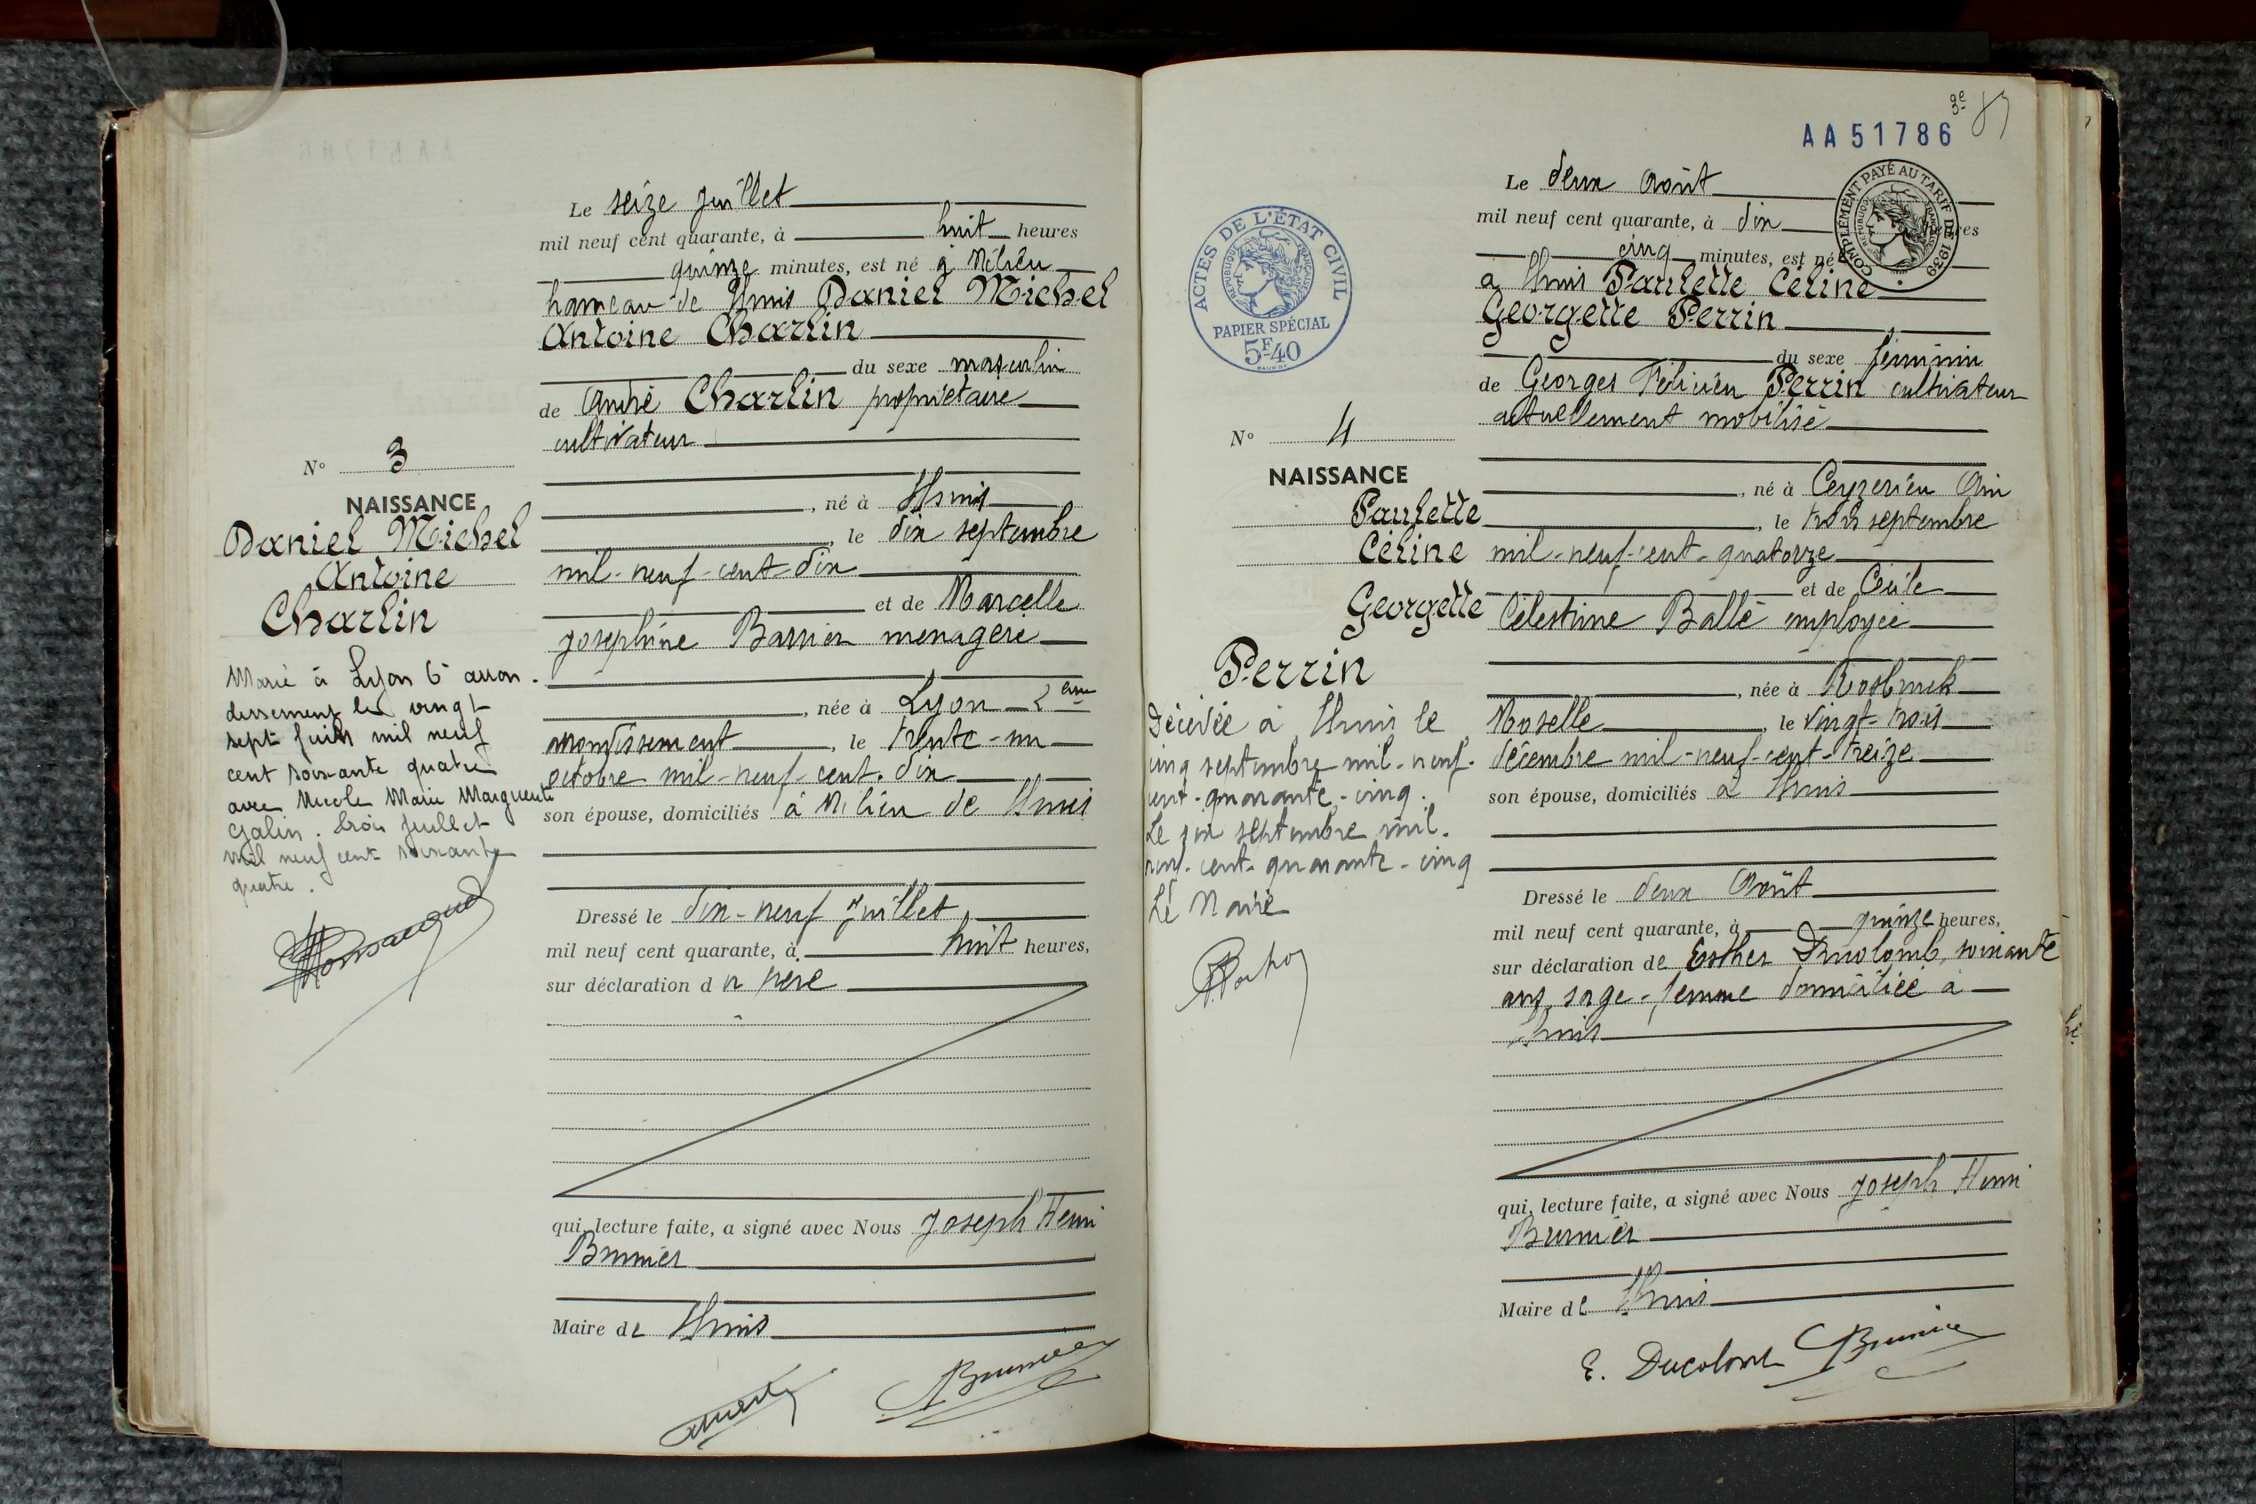 N° 3
NAISSANCE
Daniel Michel
Antoine
Charlin
Marié à Lyon 6e arron-
dissement le vingt
sept juin mil neuf
cent soixante quatre
avec Nicole Marie Marguerite
Galin. Trois juillet
mil neuf cent soixante
quatre.
Le seize Juillet
mil neuf cent quarante, à huit heures
quinze minutes, est né à Mélieu
hameau de Lhuis Daniel Michel
Antoine Charlin
du sexe masculin
de André Charlin propriétaire
cultivateur
, né à Lhuis
, le dix septembre
mil-neuf-cent-dix
et de Marcelle
Joséphine Barrier ménagère
, née à Lyon 2ème
arrondissement , le trente-un
octobre mil-neuf-cent-dix
son épouse, domiciliés à Mélieu de Lhuis
Dressé le dix-neuf Juillet
mil neuf cent quarante, à huit heures,
sur déclaration du père
qui, lecture faite, a signé avec Nous Joseph Henri
Brunier
Maire de Lhuis
Brunier
AA51786
ACTES DE L'ÉTAT CIVIL
RÉPUBLIQUE FRANÇAISE
PAPIER SPÉCIAL
5F40
COMPLÉMENT PAYÉ AU TARIF DE 1939
RÉPUBLIQUE FRANÇAISE
N° 4
NAISSANCE
Paulette
Céline
Georgette
Perrin
Décédée à Lhuis le
cinq septembre mil-neuf-
cent-quarante-cinq.
Le six septembre mil-
neuf-cent-quarante-cinq
Le Maire
Le deux Août
mil neuf cent quarante, à dix heures
cinq minutes, est né
à Lhuis Paulette Céline
Georgette Perrin
du sexe féminin
de Georges Félicien Perrin cultivateur
actuellement mobilisé
, né à Ceyzérieu Ain
, le trois septembre
mil-neuf-cent-quatorze
et de Cécile
Célestine Ballé employée
, née à
Moselle , le vingt-trois
décembre mil-neuf-cent-treize
son épouse, domiciliés à Lhuis
Dressé le deux Août
mil neuf cent quarante, à quinze heures,
sur déclaration de Esther Ducolomb, soixante
ans, sage-femme domiciliée à
Lhuis
qui, lecture faite, a signé avec Nous Joseph Henri
Brunier
Maire de Lhuis
E. Ducolomb Brunier